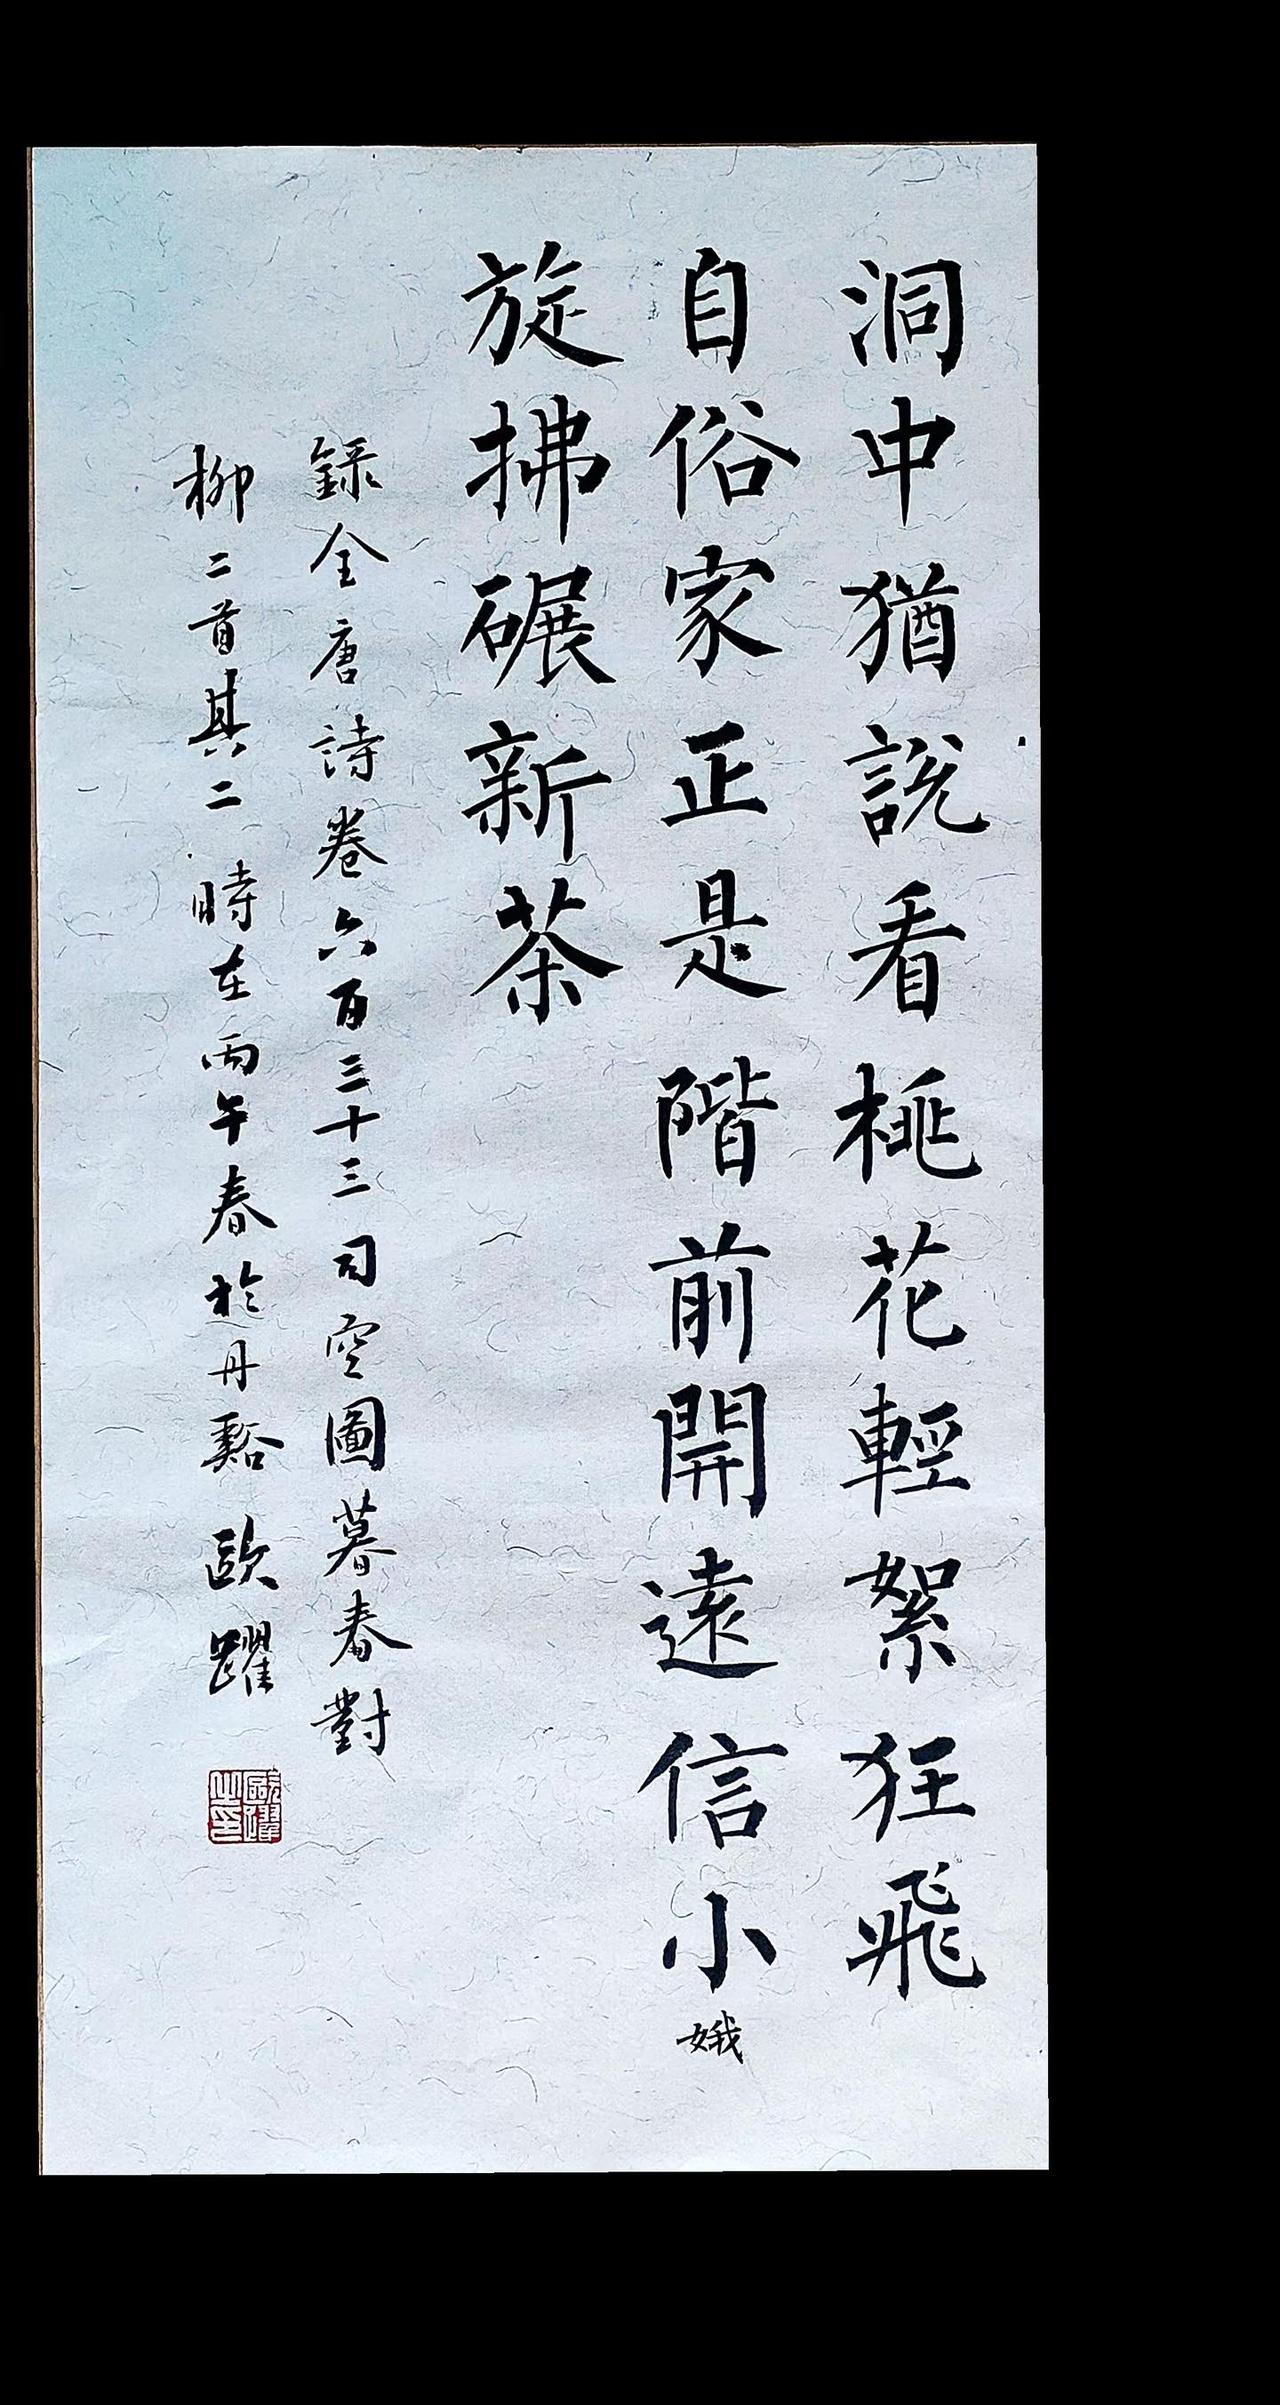 洞中猶說看桃花輕絮狂飛
自俗家正是階前開遠信小娥
旋拂碾新茶
錄全唐詩卷六百三十三司空圖暮春對
柳二首其二時在丙午春於丹谿歐躍
歐躍之印